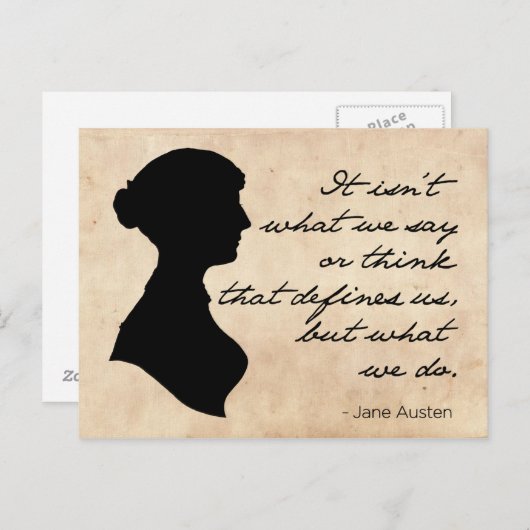 Place
It isn't
what we say
or think
that defines us,
but what
we do.
- Jane Austen